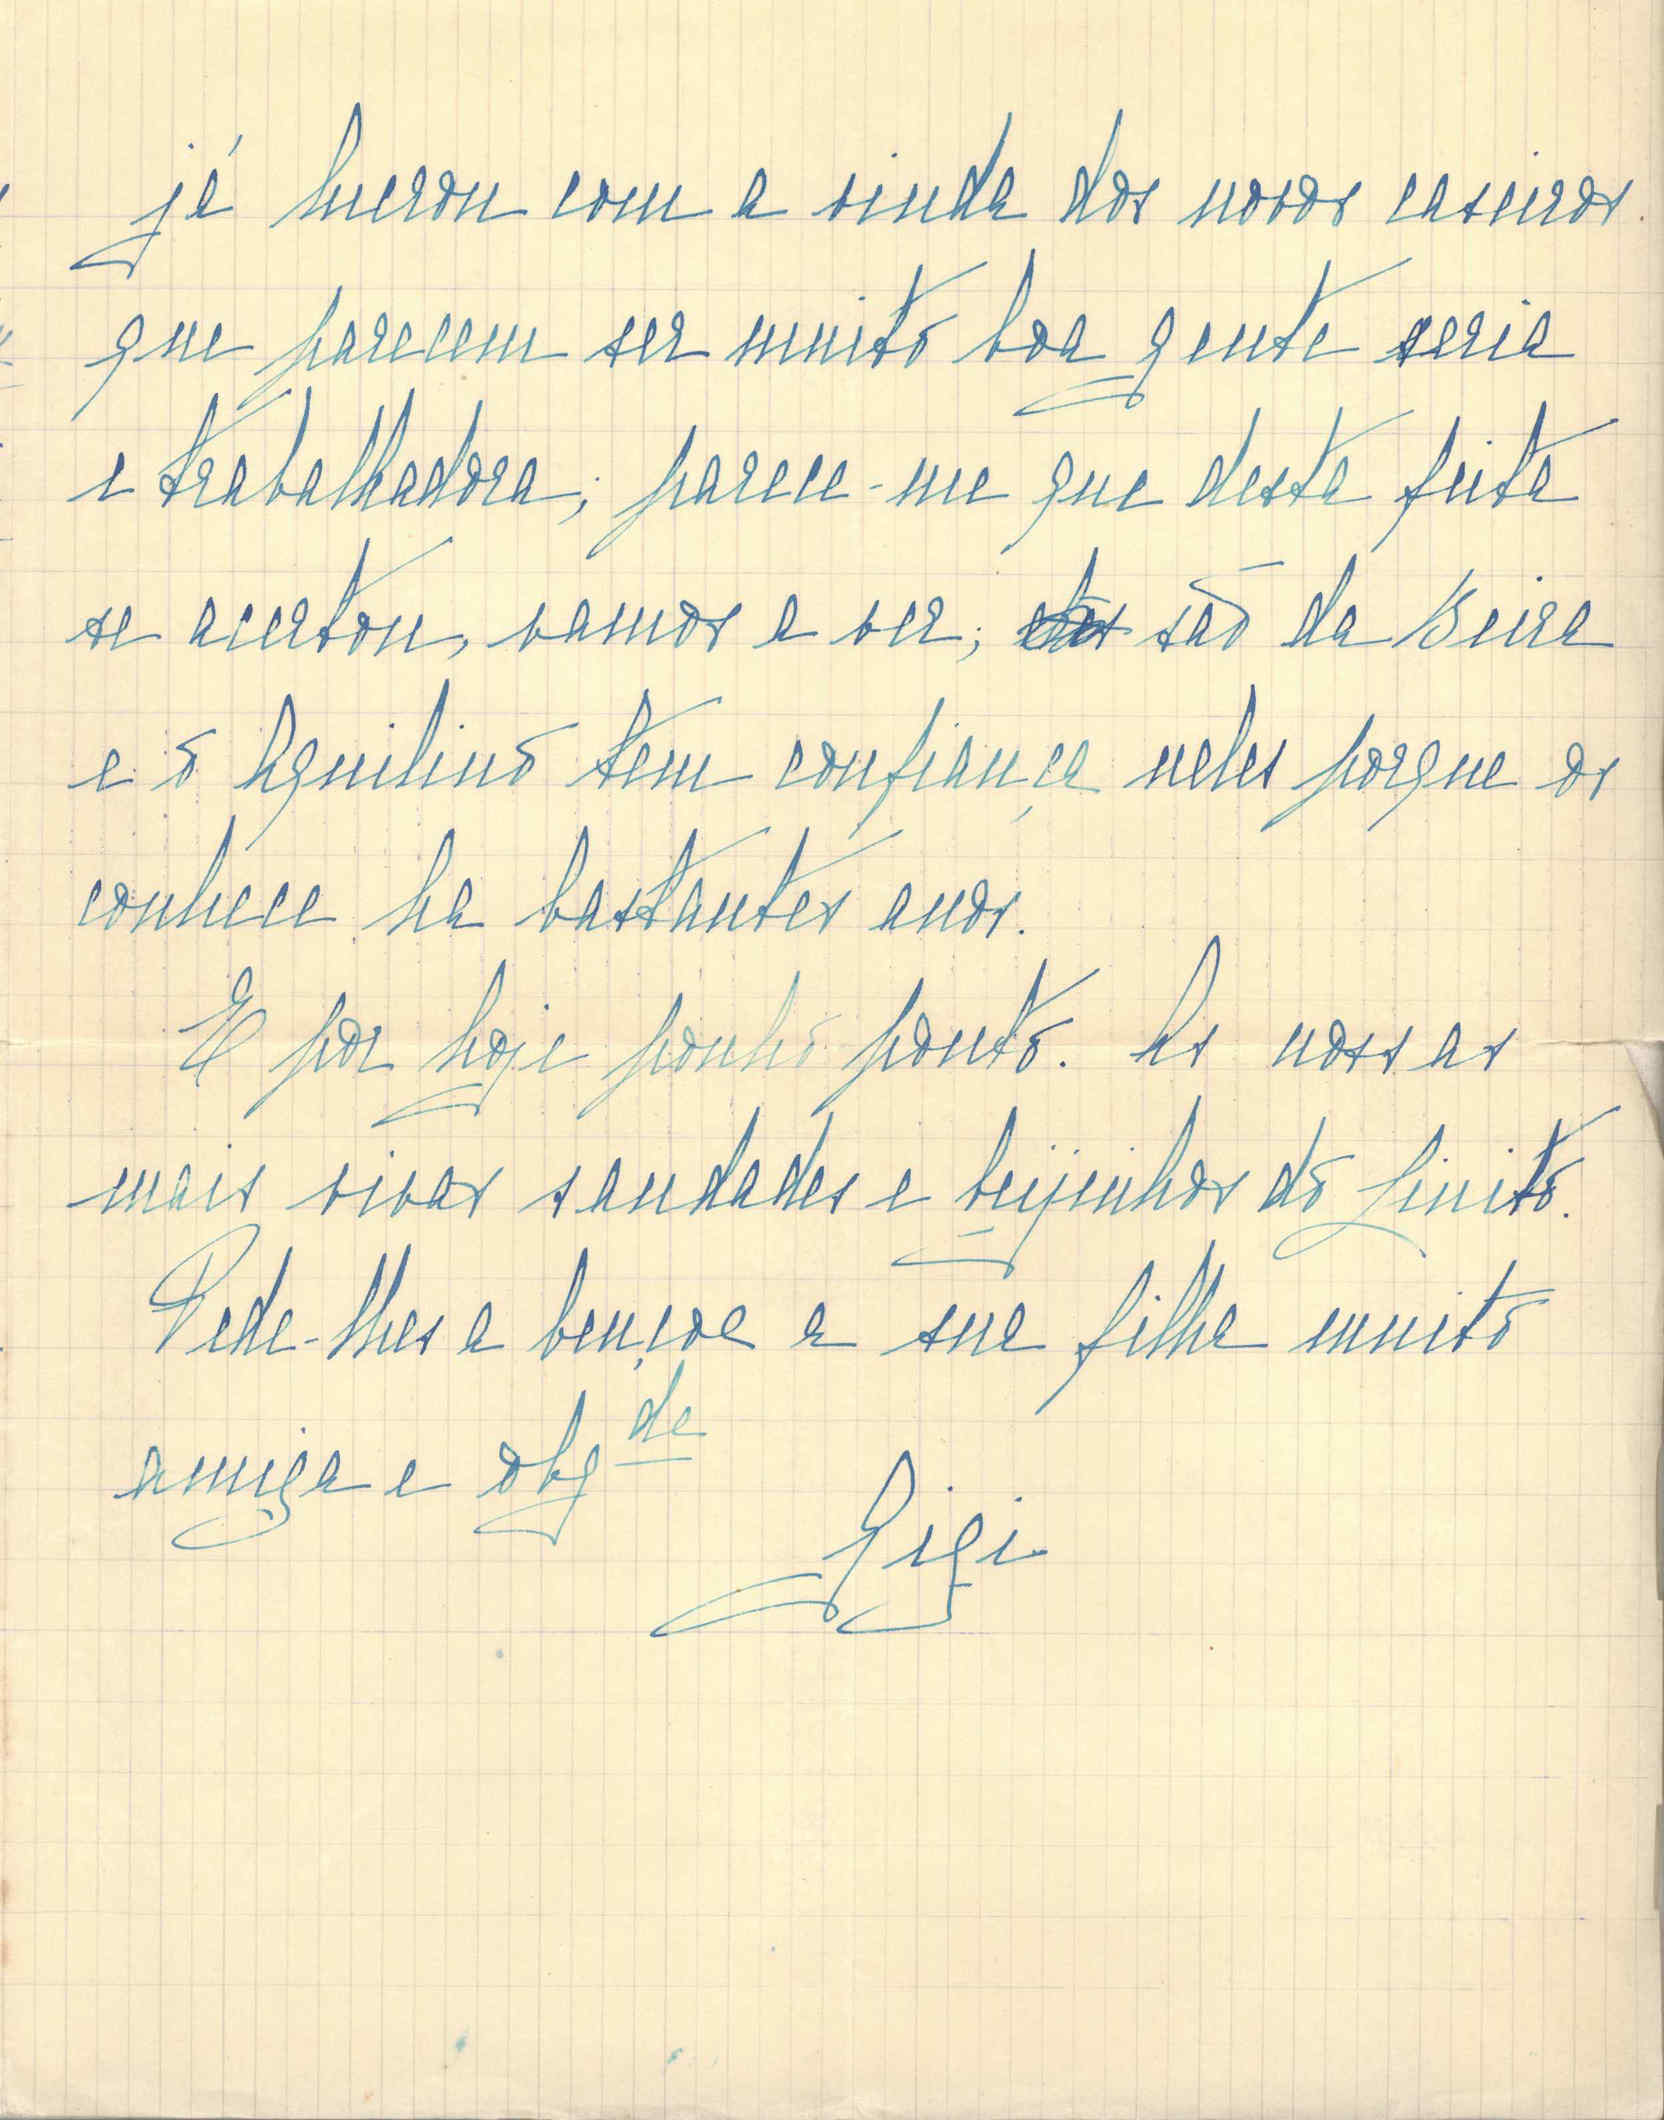 já lucrou com a vinda dos novos caseiros
que parecem ser muito boa gente seria
e trabalhadora; parece-me que desta feita
se acertou, vamos a ver; são da Beira
e o Aquilino tem confiança neles porque os
conhece ha bastantes anos.
E por hoje ponho ponto. As nossas
mais vivas saudades e beijinhos do Linito.
Pede-lhes a bençoe a sua filha muito
amiga e obgde
Gigi